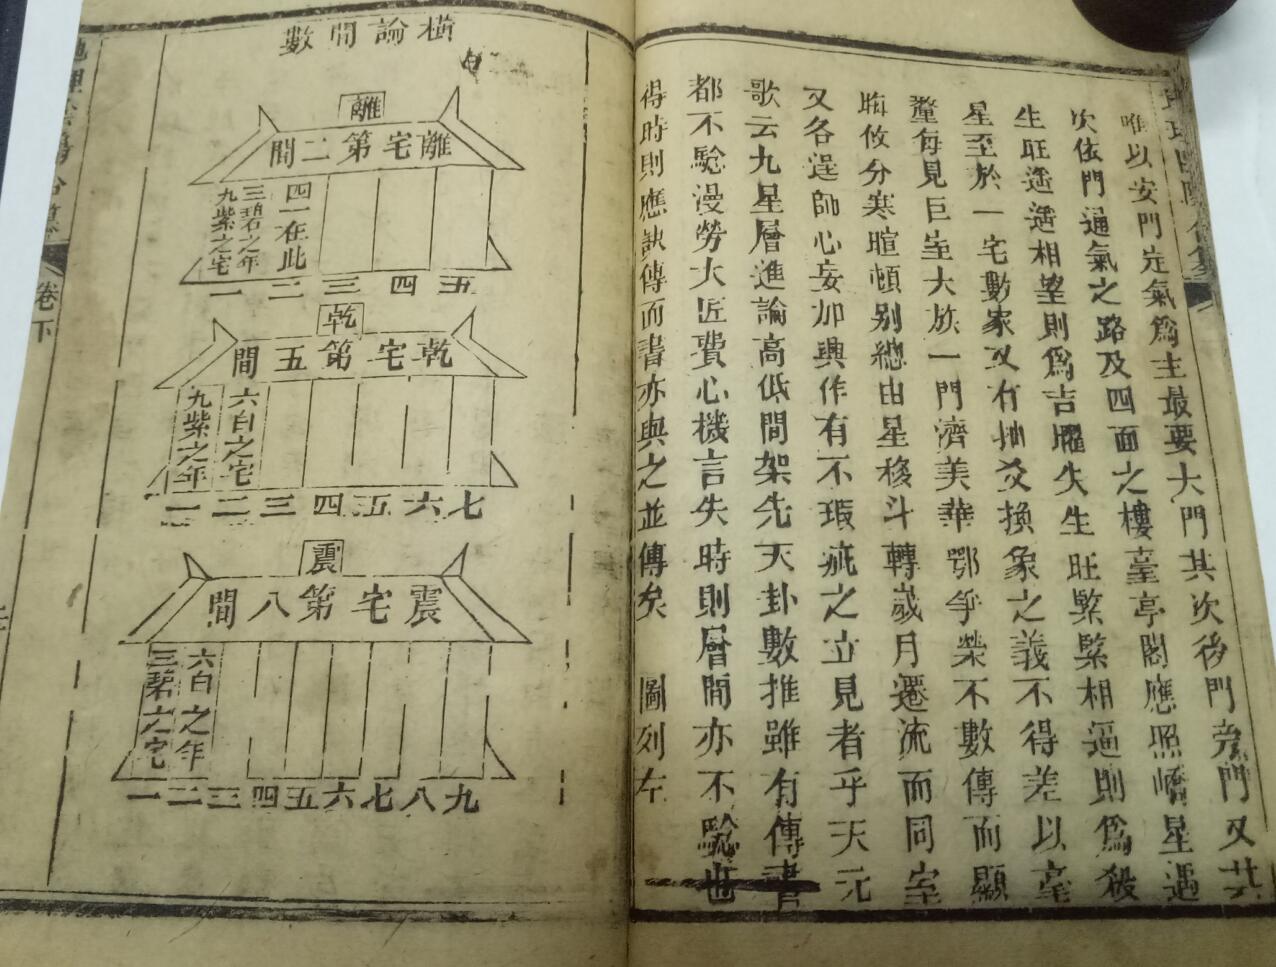 唯以安門定氣爲主最要大門其次後門旁門又其
次依門通氣之路及四面之樓臺亭閣應照嶠星遇
生旺遥遥相望則爲吉曜失生旺緊緊相逼則爲殺
星至於一宅數家又有抽爻換象之義不得差以毫
釐每見巨室大族一門濟美華鄂爭榮不數傳而顯
晦攸分寒暄頓别總由星移斗轉歲月遷流而同室
又各逞師心妄加興作有不瑕疵之立見者乎天元
歌云九星層進論高低間架先天卦數推雖有傳書
都不驗漫勞大匠費心機言失時則層間亦不驗也
得時則應訣傳而書亦與之並傳矣 圖列左
橫論間數
離
離宅第二間
四一在此
三碧之年
九紫之宅
五四三二一
乾
乾宅第五間
六白之宅
九紫之年
七六五四三二一
震
震宅第八間
六白之年
三碧之宅
九八七六五四三二一
卷下